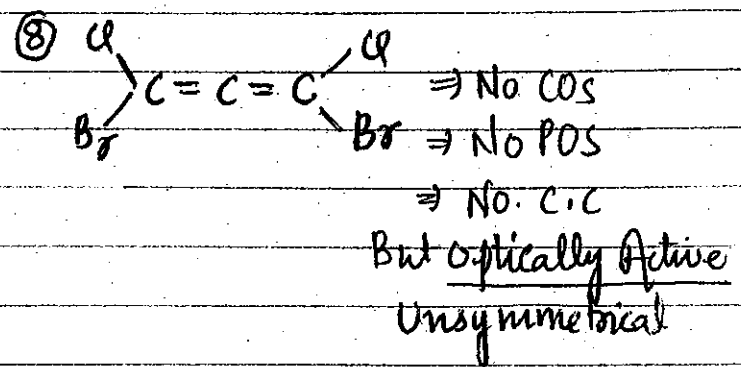 ⑧ Cl Cl
C = C = C ⇒ No COS
Br Br ⇒ No POS
⇒ No. C.C
But Optically Active
Unsymmetrical